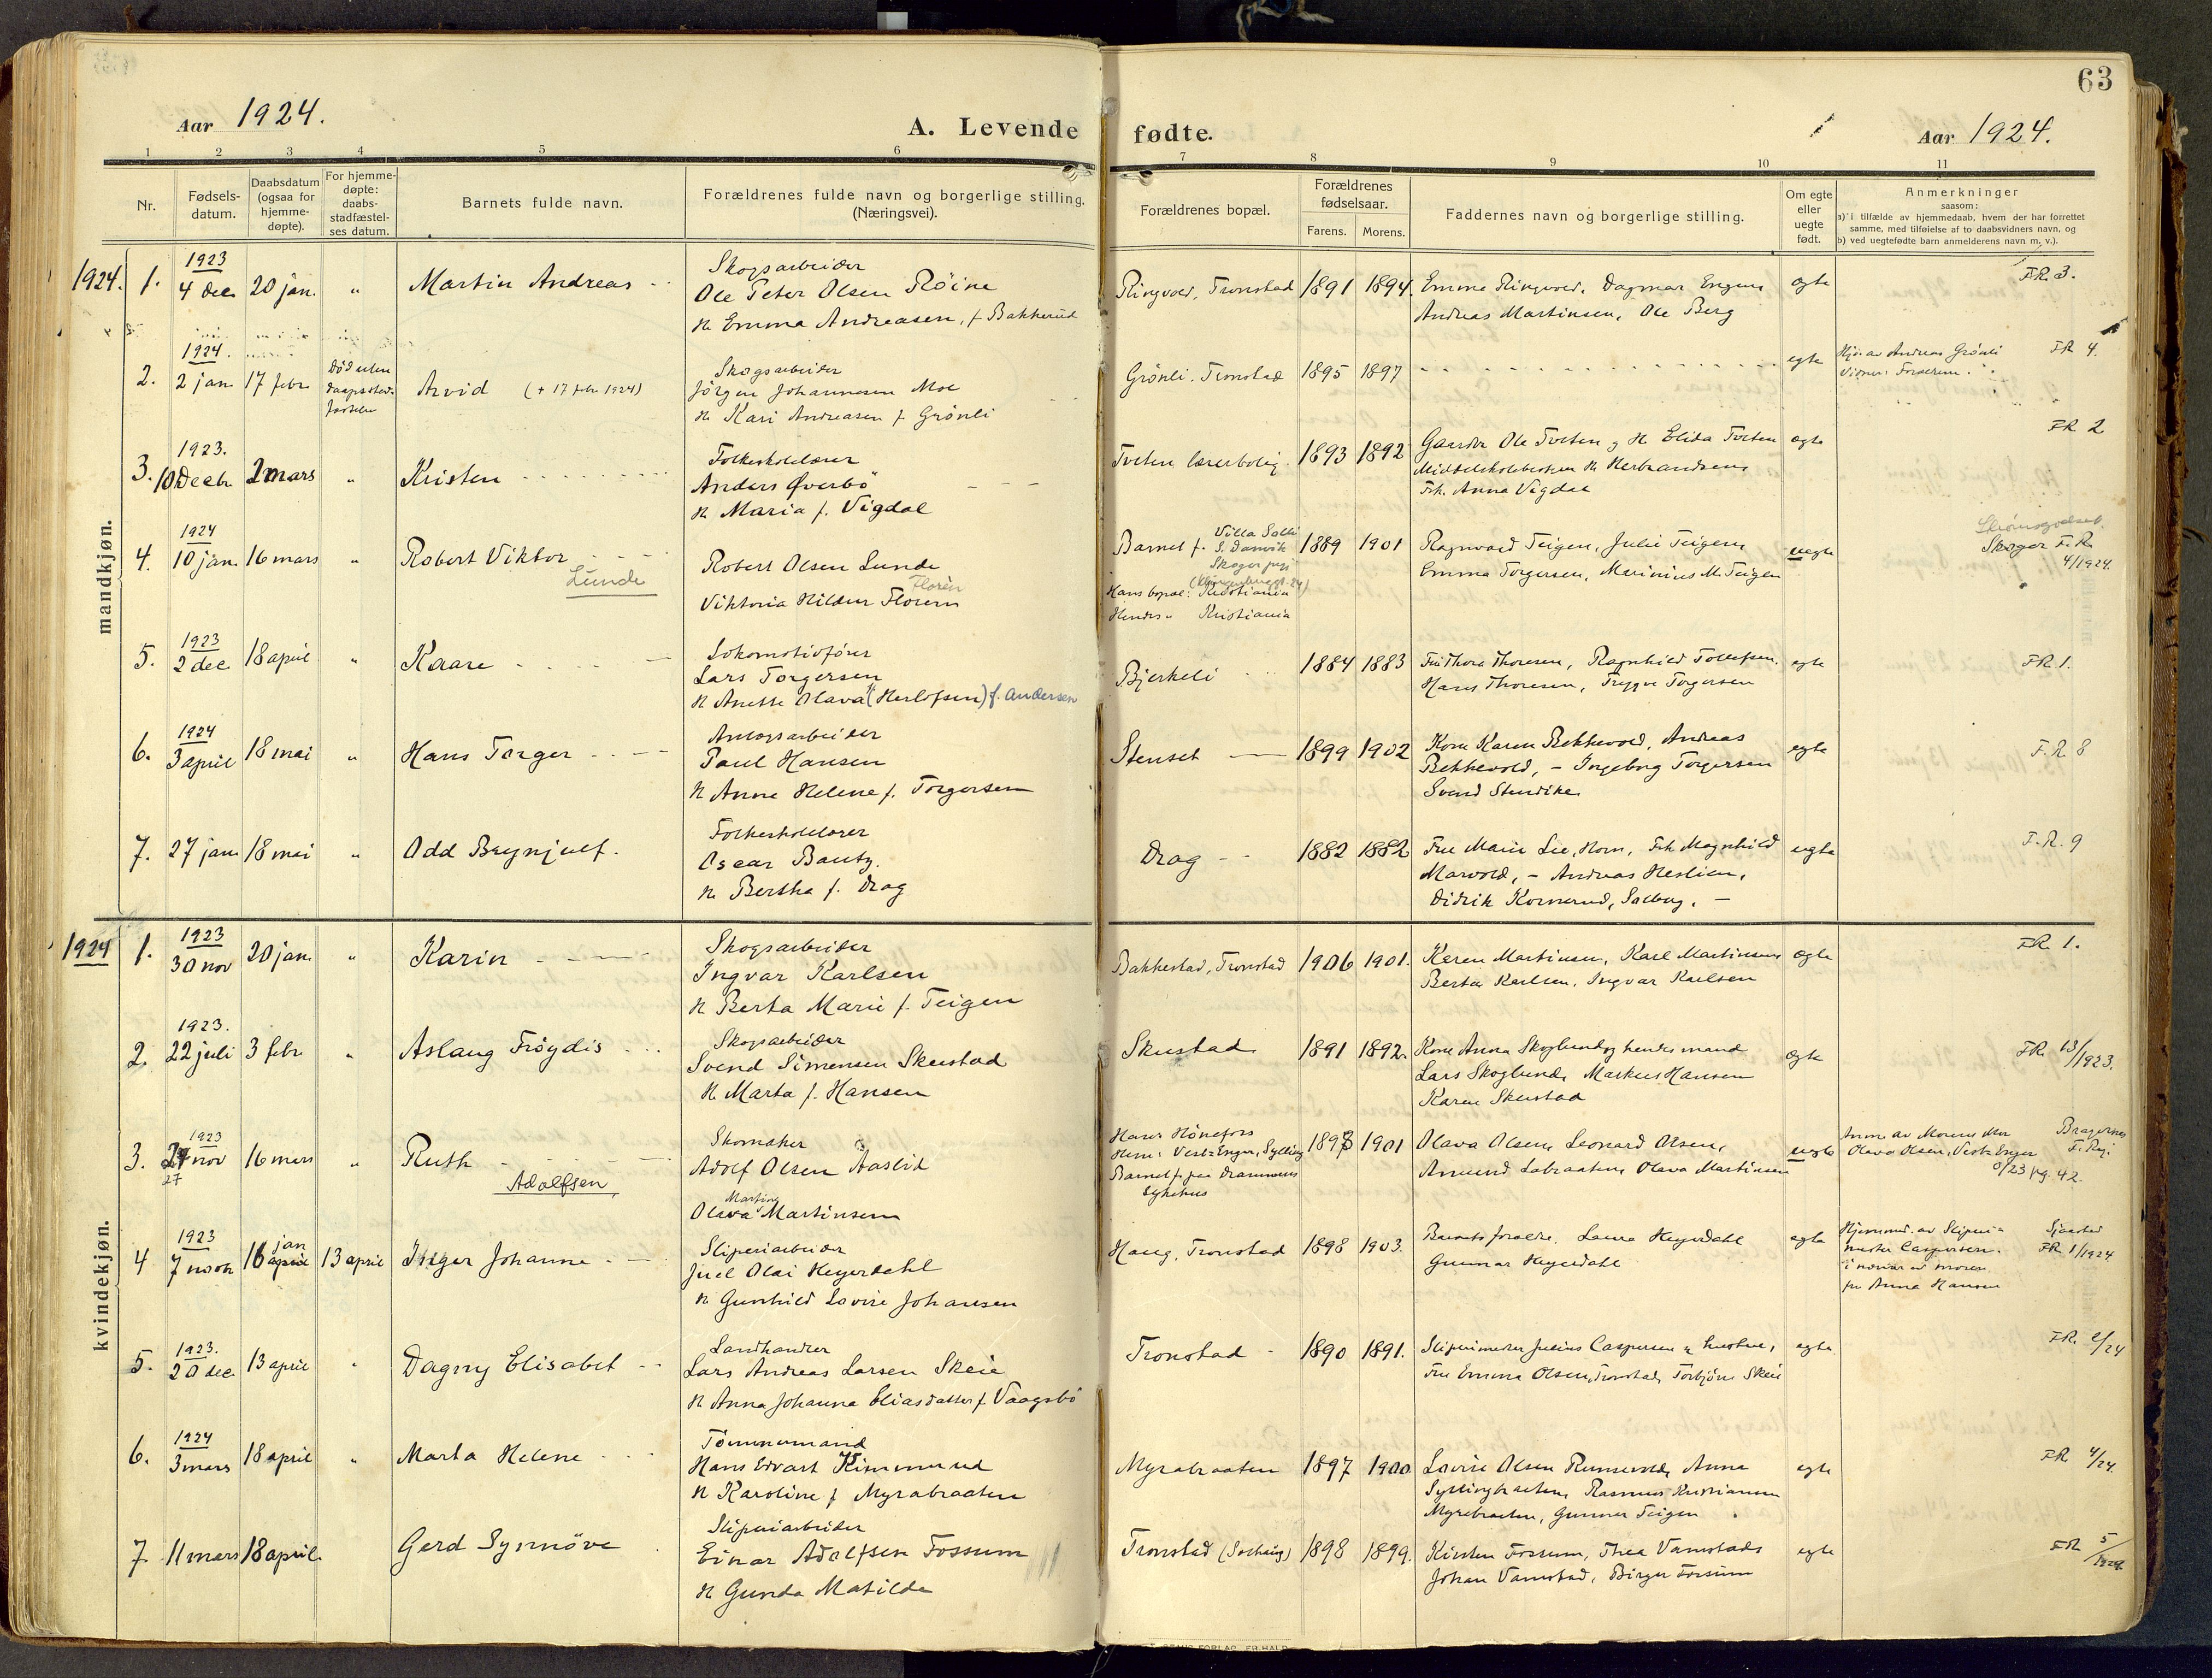 63
Aar 1924.
A. Levende fødte.
Aar 1924.
1 2 3 4 5 6 7 8 9 10 11
Nr.
Fødsels-
datum.
Daabsdatum
(ogsaa for
hjemme-
døpte).
For hjemme-
døpte:
daabs-
stadfæstel-
ses datum.
Barnets fulde navn.
Forældrenes fulde navn og borgerlige stilling.
(Næringsvei).
Forældrenes bopæl.
Forældrenes
fødselsaar.
Farens. Morens.
Faddernes navn og borgerlige stilling.
Om egte
eller
uegte
født.
Anmerkninger
saasom:
a) i tilfælde av hjemmedaab, hvem der har forrettet
samme, med tilføielse af to daabsvidners navn, og
b) ved uegtefødte barn anmelderens navn m. v.).
mandkjøn.
1924. 1. 1923 4 dec. 20 jan. " Martin Andreas
Skogsarbeider
Ole Peter Olsen Röine
H. Emma Andreasen, f. Bakkerud
Ringvold, Tronstad 1891 1894.
Emma Ringvold, Dagmar Engen
Andreas Martinsen, Ole Berg
egte FR. 3.
2. 1924. 2 jan. 17 febr.
Död uten
daapsstad-
festelse
Arvid (+ 17 febr 1924)
Skogsarbeider
Jörgen Johannesen Moe
H. Kari Andreasen f. Grönli
Grönli. Tronstad 1895 1897
egte
Hj. av Andreas Grönli
FR 4.
3. 1923. 10 Decbr 2 mars " Kristen
Folkeskolelærer
Anders Øverbö
H. Maria f. Vigdal
Tveten lærerbolig. 1893 1892
Gaardbr Ole Tveten og H. Elida Tveten
Middelskolebestyrer H. Herbrandsen
Frk. Anna Vigdal
egte FR 2
4. 1924 10 jan. 16 mars " Robert Viktor
Lunde
Robert Olsen Lunde
Florèn
Viktoria Hildur Floren
Barnet f. Villa Solli
S. Danvik
Skoger
Hans bopæl: Kristiania
Hendes " Kristiania
1889 1901
Ragnvald Teigen, Julie Teigen,
Emma Torgersen, Marinius M. Teigen
uegte
Skoger F.R.
4/1924.
5. 1923 2 dec 18 april " Kaare
Lokomotivförer
Lars Torgersen
H. Anette Olava (Herlofsen) f. Andersen
Bjerkeli 1884 1883
Fru Thora Thoresen, Ragnhild Tollefsen.
Hans Thoresen, Trygve Torgersen
egte FR. 1.
6. 1924 3 april 18 mai " Hans Torger
Anlægsarbeider
Paul Hansen
H. Anne Helene f. Torgersen
Stenset 1899 1902
Kone Karen Bekkevold, Andreas
Bekkevold, – Ingeborg Torgersen
Svend Stensike
egte F.R 8
7. 27 jan. 18 mai " Odd Brynjulf.
Folkeskolelærer
Oscar Bautz.
H. Bertha f. Drag
Drag 1882 1882
Fru Marie Lie, Horn, Frk Magnhild
Marvold, – Andreas Heslien,
Didrik Kornerud, Solberg. –
egte F.R. 9
kvindekjøn.
1924 1. 1923 30 nov 20 jan. " Karin
Skogsarbeider
Ingvar Karlsen
H. Berta Marie f. Teigen
Bakkestad, Tronstad 1906 1901.
Karen Martinsen, Karl Martinsen
Berta Karlsen, Ingvar Karlsen
egte FR. 1.
2. 1923. 22 juli 3 febr. " Aslaug Fröydis
Skogsarbeider
Svend Simensen Skustad
H. Marta f. Hansen
Skustad 1891 1892.
Kone Anna Skoglund og hendes mand
Lars Skoglund, Markus Hansen
Karen Skustad
egte FR. 13/1923.
3. 1923 27 nov 27 16 mars " Ruth
Adolfsen
Skomaker
Adolf Olsen Aaslid
Martine
Olava Martinsen
Hans: Hönefos
Hens: Vestre Enger, Sylling
Barnet f. paa Drammens
Sykehus
1898 1901
Olava Olsen, Leonard Olsen,
Amund Labraaten, Olava Martinsen
uegte
Anm. av Morens Mor
Olava Olsen, Vestre Enger
Bragernes
F. Reg.
8/23 pg. 42.
4 1923 7 novbr 16 jan april 13 april Inger Johanne
Sliperiarbeider
Juel Olai Heyerdahl
H. Gunhild Lovise Johansen
Haug, Tronstad 1898 1903.
Barnets forældre. Laura Heyerdahl
Gunnar Heyerdahl
egte
Hjemmed. av Sliperi-
mester Caspersen.
i nærvær av moren
fru Anna Hansen
Sjaastad
FR 1/1924
5. 1923. 20 dec. 13 april " Dagny Elisabet
Landhandler
Lars Andreas Larsen Skeie
H. Anna Johanna Eliasdatter f. Vaagsbö
Tronstad 1890 1891.
Sliperimester Julius Caspersen og hustru,
Fru Emma Olsen, Tronstad, Torbjörn Skeie
egte FR. 2/24
6. 1924 3 mars 18 april " Marta Helene
Tömmermand
Hans Edvart Kimmerud
H. Karoline f. Myrabraaten
Myrabraaten 1897 1900
Lovise Olsen Runsevold, Anna
Syllingbraaten, Rasmus Kristiansen
Myrebraaten, Gunnar Teigen
egte FR 4/24.
7. 11 mars 18 april. Gerd Synnöve
Sliperiarbeider
Einar Adolfsen Fossum
H. Gunda Matilda
Tronstad (Solhaug) 1898 1899.
Kirsten Fossum, Thea Vamstad,
Johan Vamstad, Birger Fossum
egte FR 5/1924